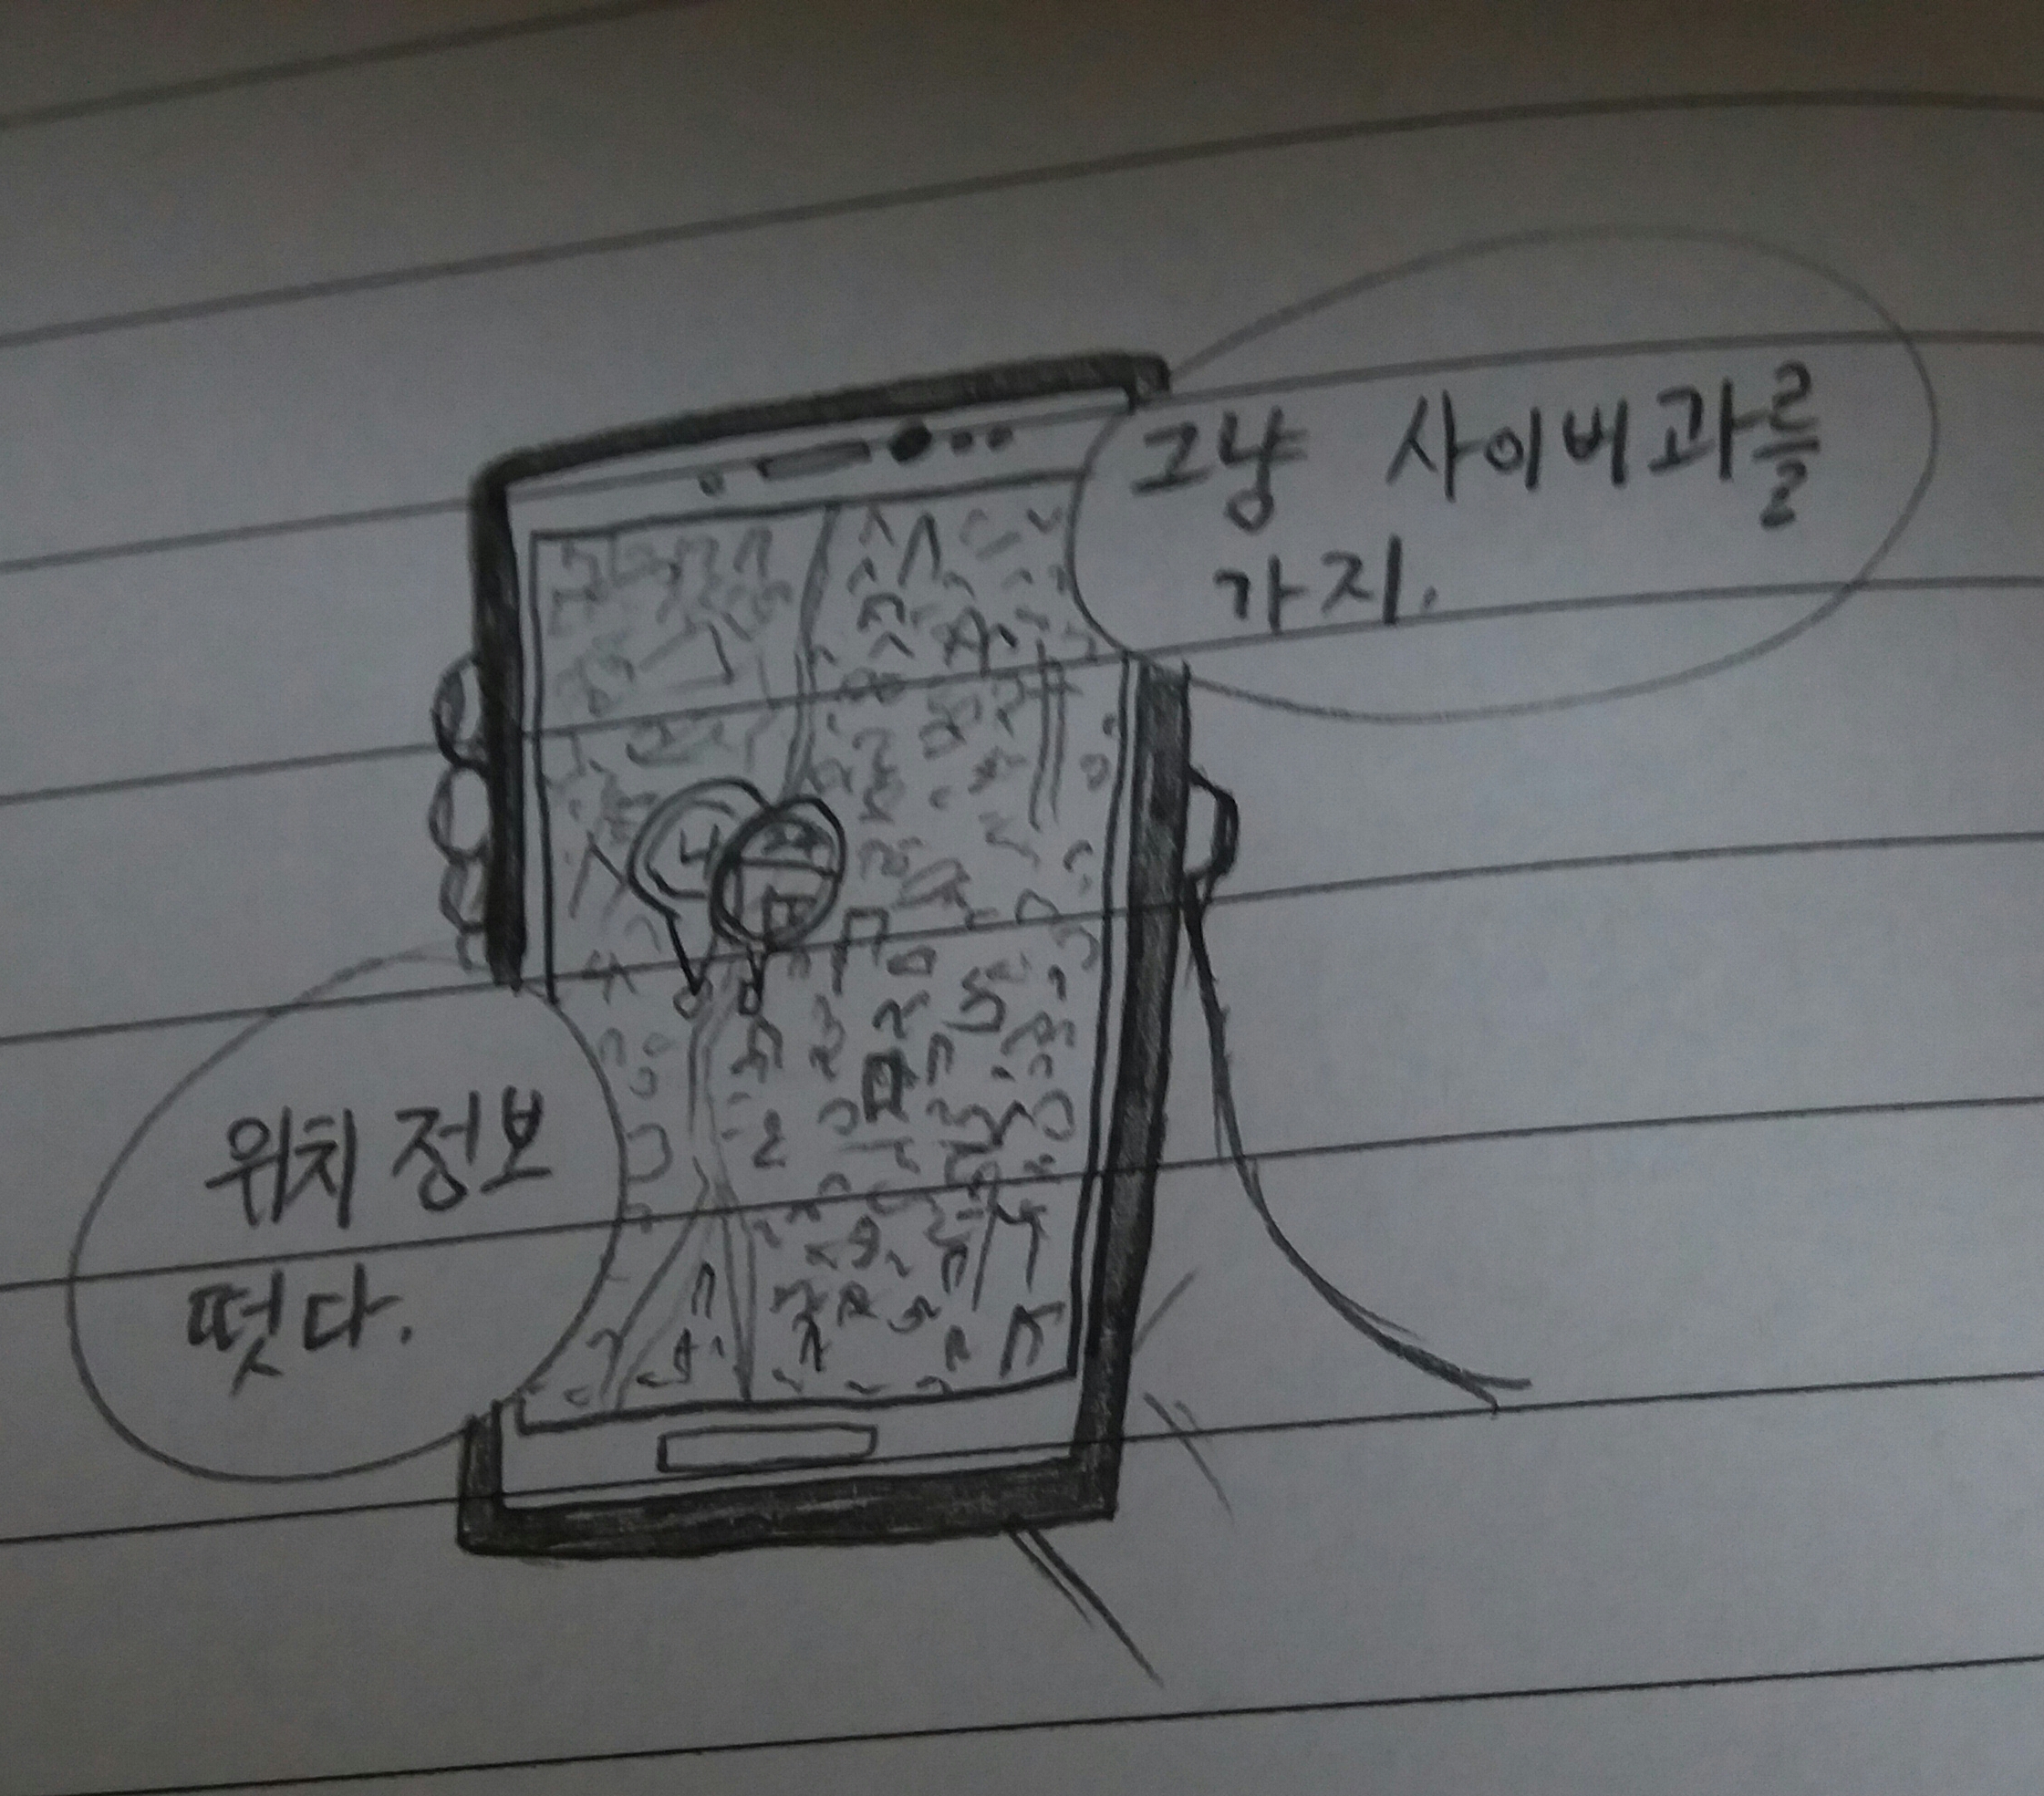 그냥 사이버과를
가지.
위치 정보
떳다.